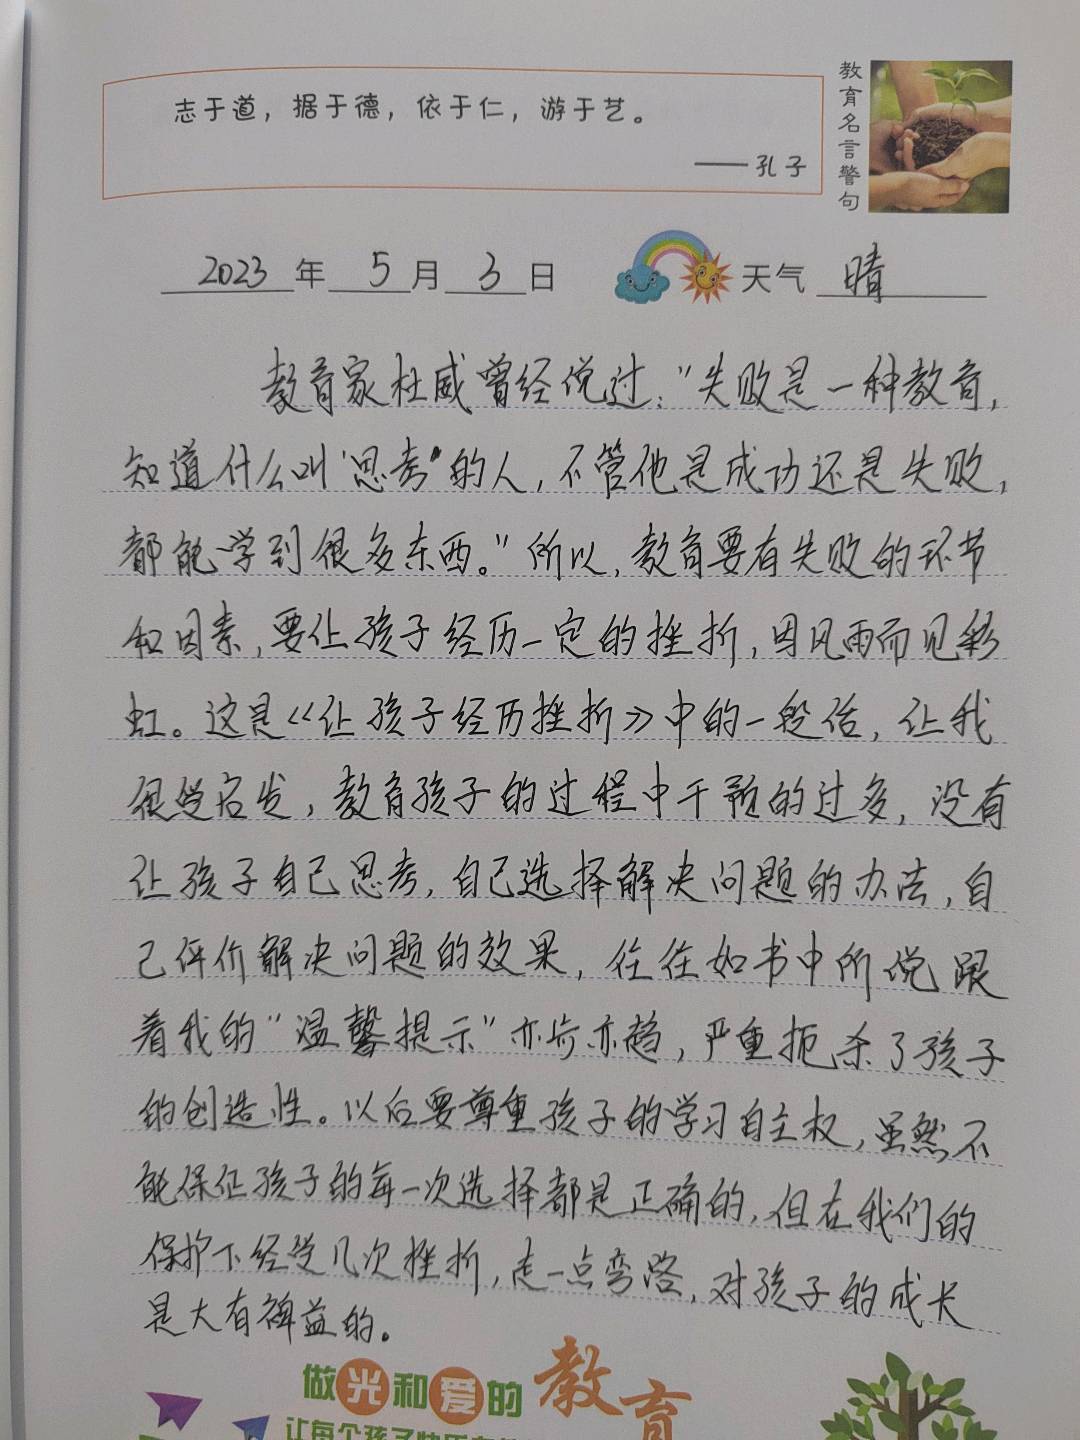 志于道，据于德，依于仁，游于艺。
——孔子
教育名言警句
2023年5月3日 天气 晴
教育家杜威曾经说过："失败是一种教育，
知道什么叫'思考'的人，不管他是成功还是失败，
都能学到很多东西。"所以，教育要有失败的环节
和因素，要让孩子经历一定的挫折，因风雨而见彩
虹。这是《让孩子经历挫折》中的一段话，让我
很受启发，教育孩子的过程中干预的过多，没有
让孩子自己思考，自己选择解决问题的办法，自
己评价解决问题的效果，往往如书中所说跟
着我的"温馨提示"亦步亦趋，严重扼杀了孩子
的创造性。以后要尊重孩子的学习自主权，虽然不
能保证孩子的每一次选择都是正确的，但在我们的
保护下经受几次挫折，走一点弯路，对孩子的成长
是大有裨益的。
做光和爱的教育
让每个孩子快乐